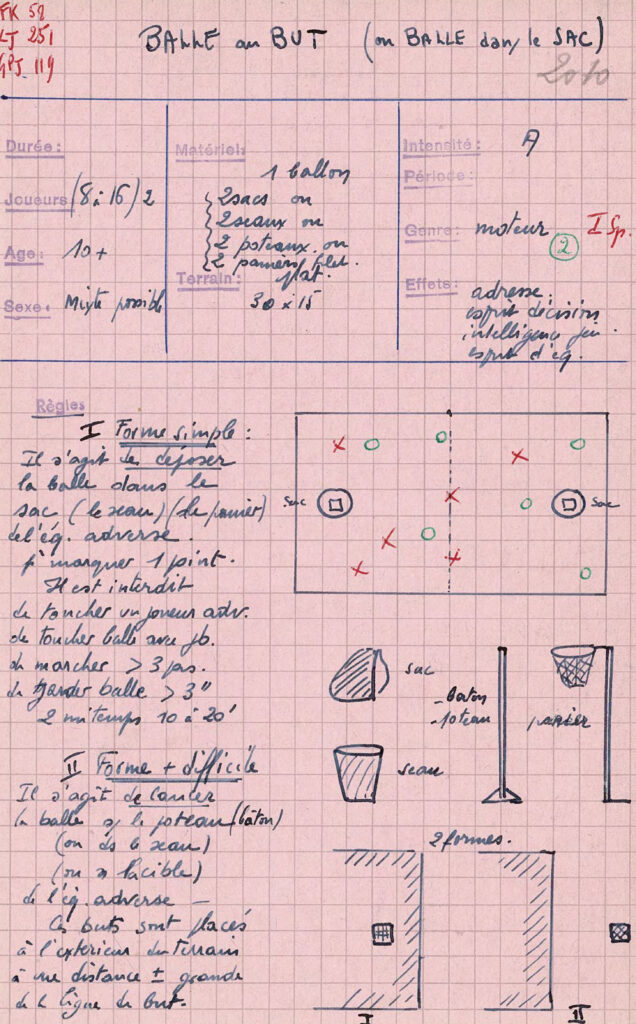 FK 52
LJ 251
GPJ. 119
BALLE au BUT (ou BALLE dans le SAC)
2010
Durée :
Joueurs (8 à 16) 2
Age : 10 +
Sexe : Mixte possible
Matériel:
1 ballon
2 sacs ou
2 seaux ou
2 poteaux ou
2 paniers filet.
Terrain: plat.
30 x 15
Intensité : A
Période :
Genre : moteur I Sp.
2
Effets : adresse.
esprit décision
intelligence jeu.
esprit d'éq.
Règles
I Forme simple :
Il s'agit de déposer
la balle dans le
sac (le seau) (le panier)
de l'éq. adverse.
pr marquer 1 point.
Il est interdit
de toucher un joueur adv.
de toucher balle avec jb.
de marcher > 3 pas.
de garder balle > 3"
2 mi temps 10 à 20'
Sac
Sac
sac
seau
- baton
- poteau
panier
II Forme + difficile
Il s'agit de lancer
la balle s/ le poteau (bâton)
(ou ds le seau)
(ou
de l'éq. adverse —
Ces buts sont placés
à l'extérieur du terrain
à une distance ± grande
de la ligne de but.
2 formes.
I
II